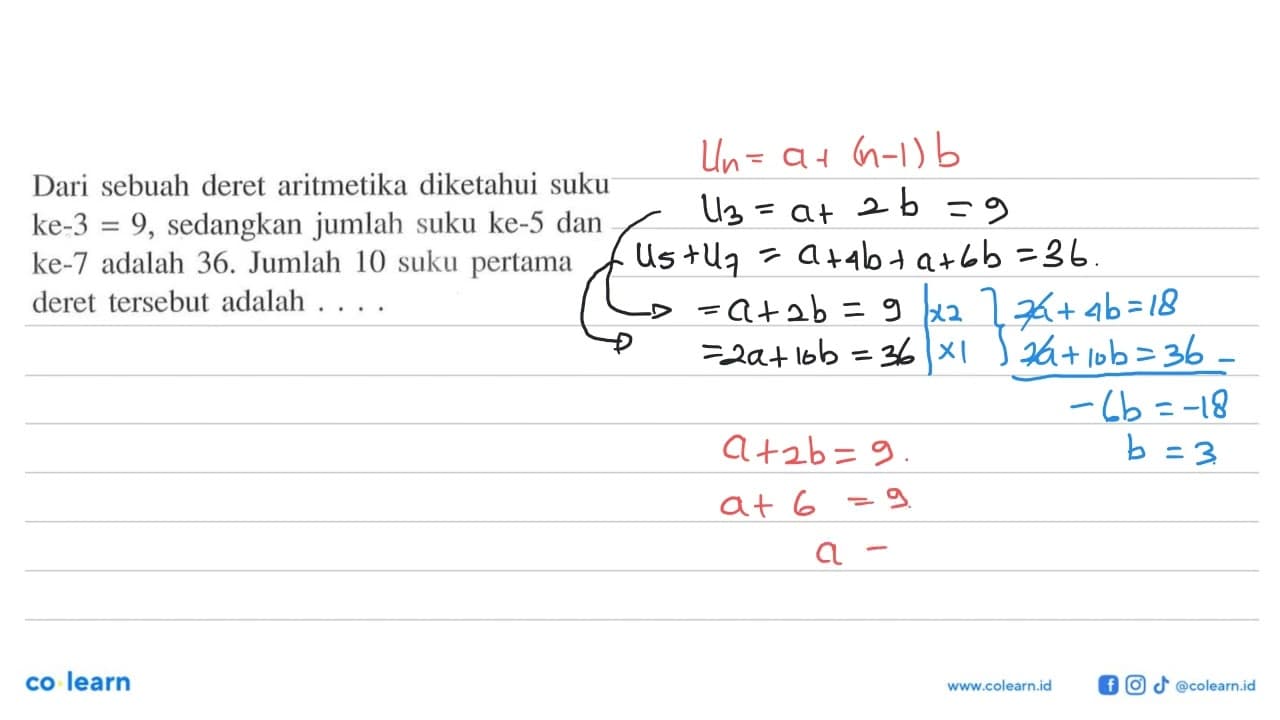 Dari sebuah deret aritmetika diketahui suku
ke-3 = 9, sedangkan jumlah suku ke-5 dan
ke-7 adalah 36. Jumlah 10 suku pertama
deret tersebut adalah . . . .
Un = a + (n-1) b
U3 = a + 2b = 9
U5 + U7 = a + 4b + a + 6b = 36.
= a + 2b = 9 | x2 } 2a + 4b = 18
= 2a + 10b = 36 | x1 } 2a + 10b = 36 -
-6b = -18
b = 3
a + 2b = 9.
a + 6 = 9
a =
co learn
www.colearn.id
@colearn.id